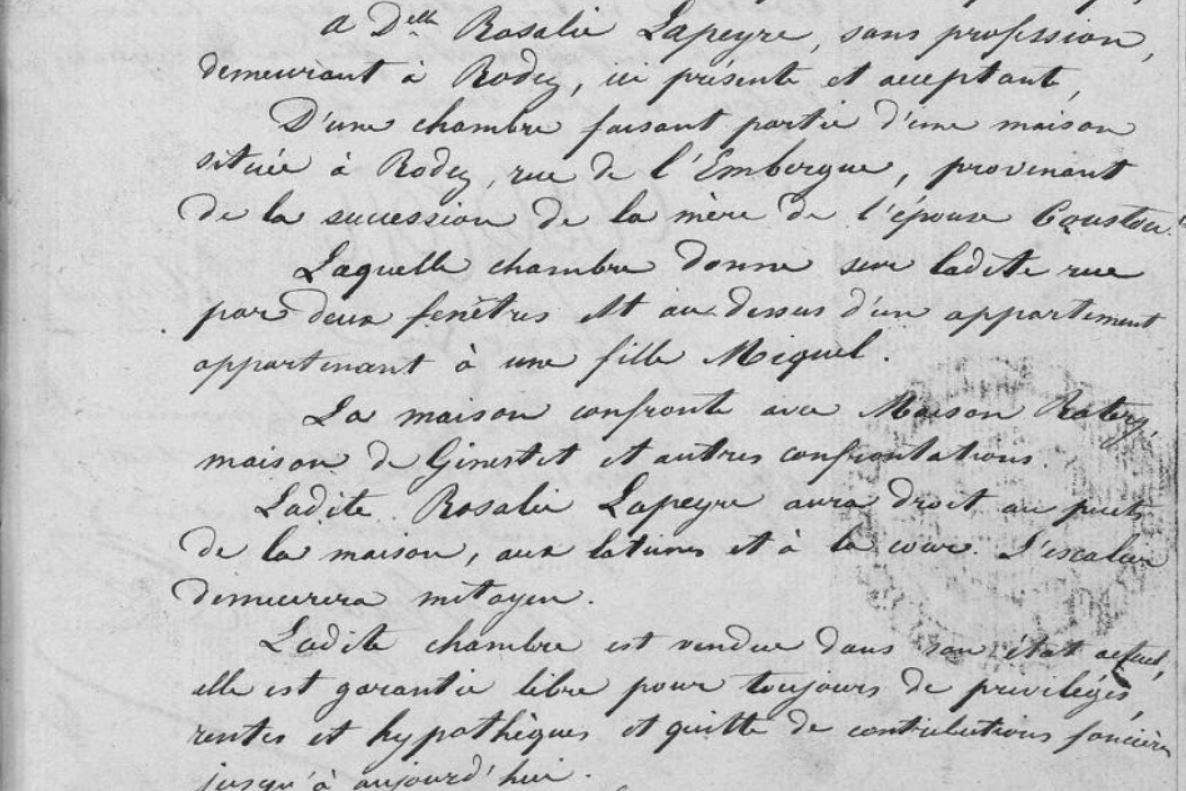 A Delle Rosalie Lapeyre, sans profession,
demeurant à Rodez, ici présente et acceptant,
D'une chambre faisant partie d'une maison
située à Rodez, rue de l'Embergue, provenant
de la succession de la mère de l'épouse Couston.
Laquelle chambre donne sur ladite rue
par deux fenêtres et au dessus d'un appartement
appartenant à une fille Miquel.
La maison confronte avec Maison Ratery,
maison de Ginestet et autres confrontations.
Ladite Rosalie Lapeyre aura droit au puits
de la maison, aux latrines et à la cour. L'escalier
demeurera mitoyen.
Ladite chambre est vendue dans son état actuel,
elle est garantie libre pour toujours de privilèges,
rentes et hypothèques et quitte de contributions foncières
jusqu'à aujourd'hui.